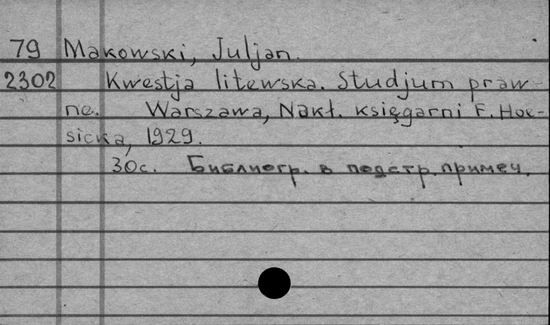 79 Makowski, Juljan.
2302 Kwestja litewska. Studjum praw-
ne. Warszawa, Nakł. księgarni F. Hoe-
sicka, 1929.
30c. Библиогр. в подстр. примеч.